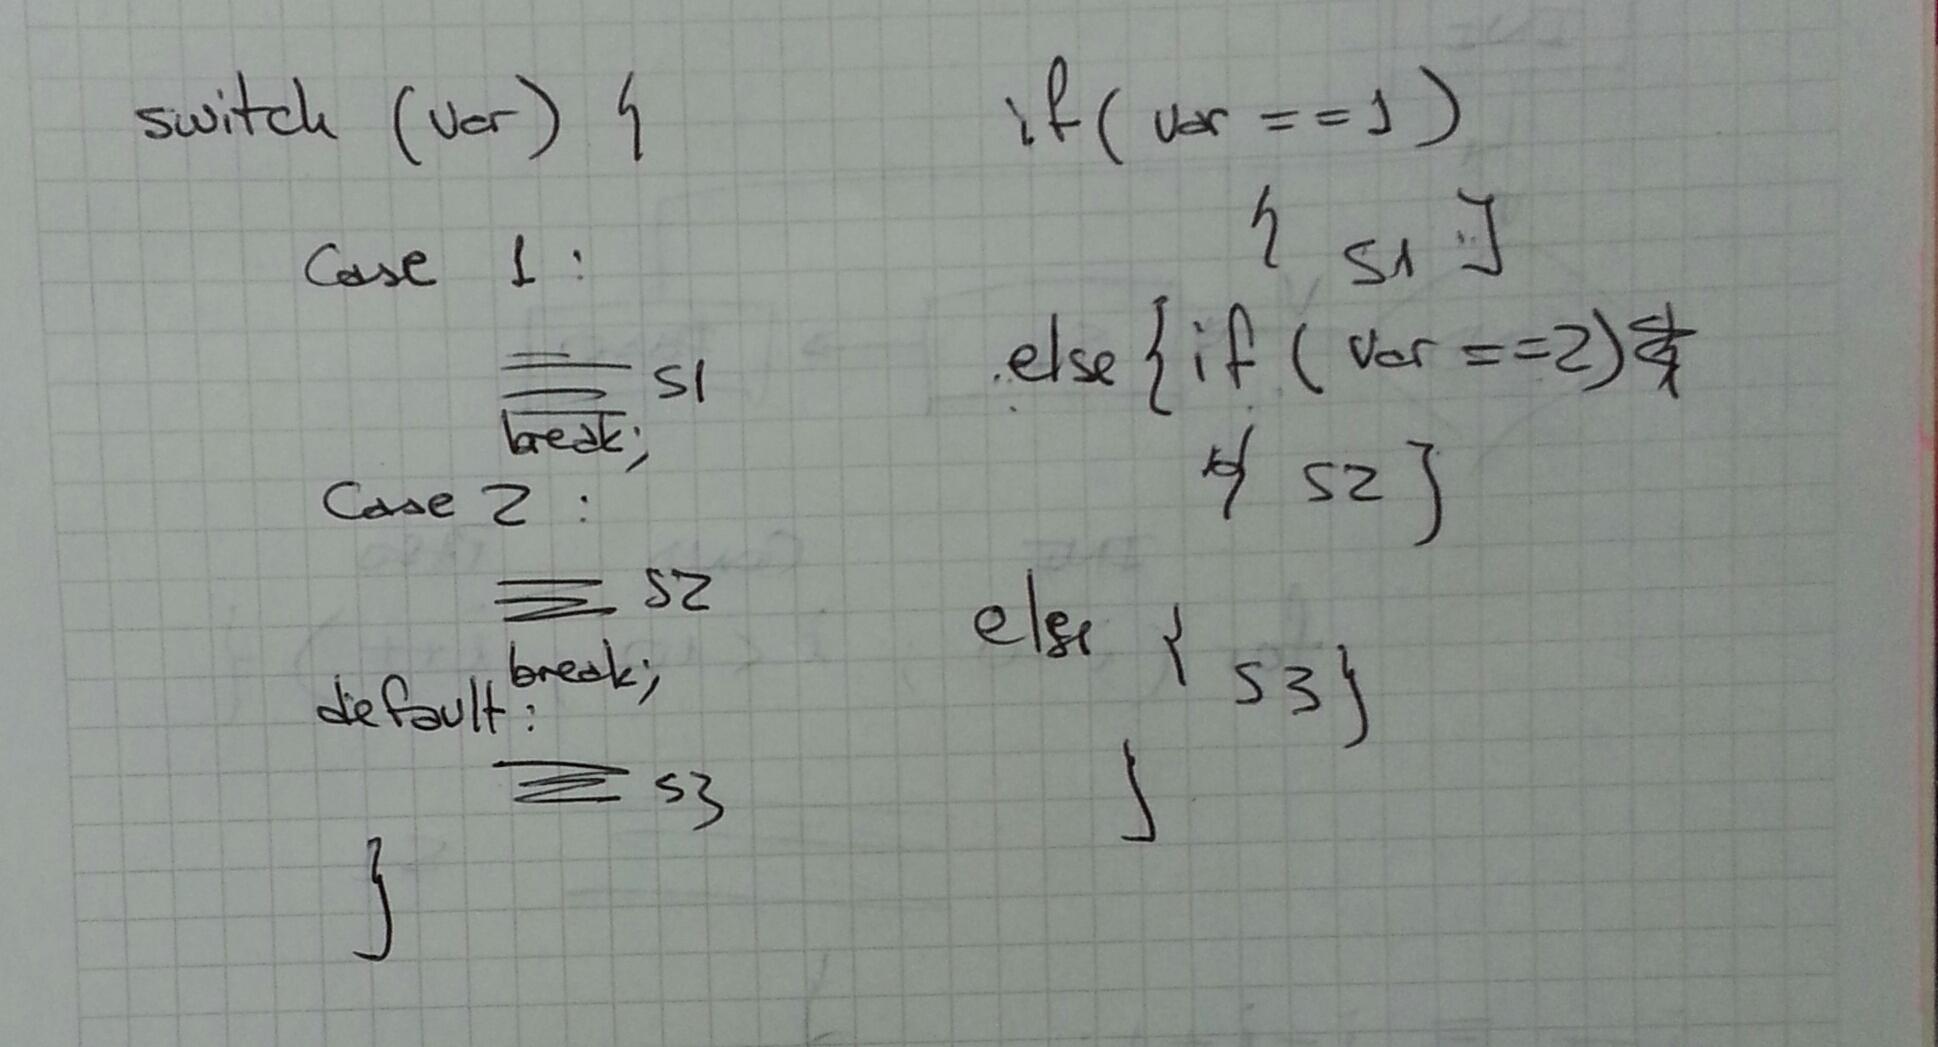 switch (var) {
Case 1 :
S1
break;
Case 2 :
S2
break;
default :
S3
}
if ( var == 1 )
{ S1 }
else { if ( var == 2 )
{ S2 }
else {
S3 }
}